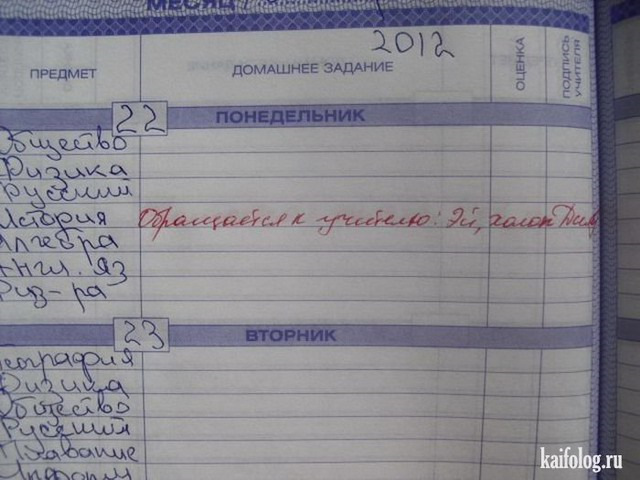 МЕСЯЦ
2012
ПРЕДМЕТ
ДОМАШНЕЕ ЗАДАНИЕ
ОЦЕНКА
ПОДПИСЬ
УЧИТЕЛЯ
22
ПОНЕДЕЛЬНИК
Общество
Физика
Русский
История
Обращается к учителю: Эй, холоп
Алгебра
Англ. яз
Физ-ра
23
ВТОРНИК
География
Физика
Общество
Русский
Плавание
Информ
kaifolog.ru